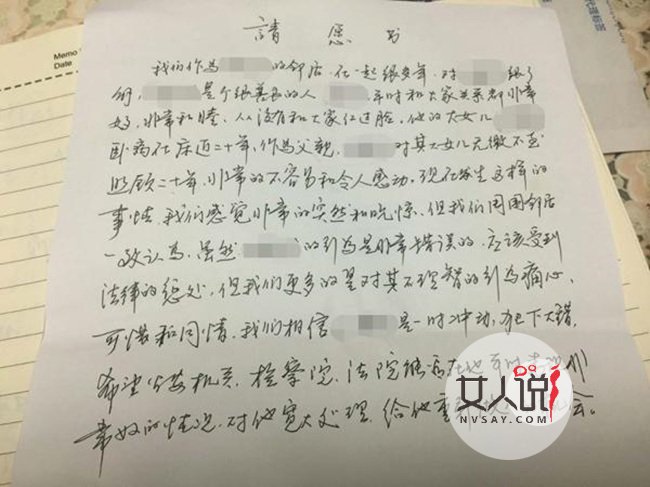 Memo
Date
代理标签
請愿书
我们作为 的邻居.在一起很多年.对 很了
解, 是个很善良的人 平时和大家关系都非常
好,非常和睦,从没有和大家红过脸,他的大女儿
卧病在床近二十年,作为父亲, 对其大女儿无微不至
照顾二十年,非常的不容易和令人感动,现在发生这样的
事情,我们感觉非常的突然和吃惊.但我们周围邻居
一致认为,虽然 的引为是非常错误的.应该受到
法律的惩处,但我们更多的是对其不理智的引为痛心,
可惜和同情.我们相信 是一时冲动,犯下大错,
希望公安机关,检察院,法院能 在他平时表现
常好的情况.对他宽大处理,给他重 会。
女人说
NVSAY.COM